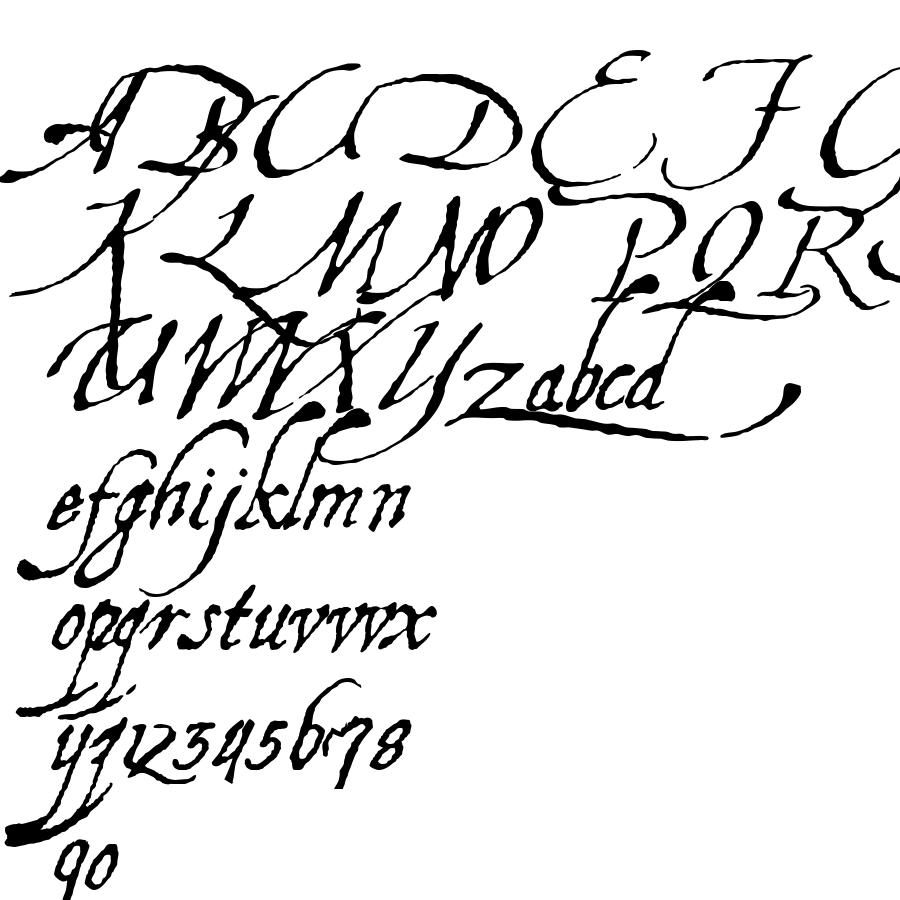 ABCDEFG
KLMNOPQRS
TUWXYZabcd
efghijklmn
opqrstuvwx
yz12345678
90